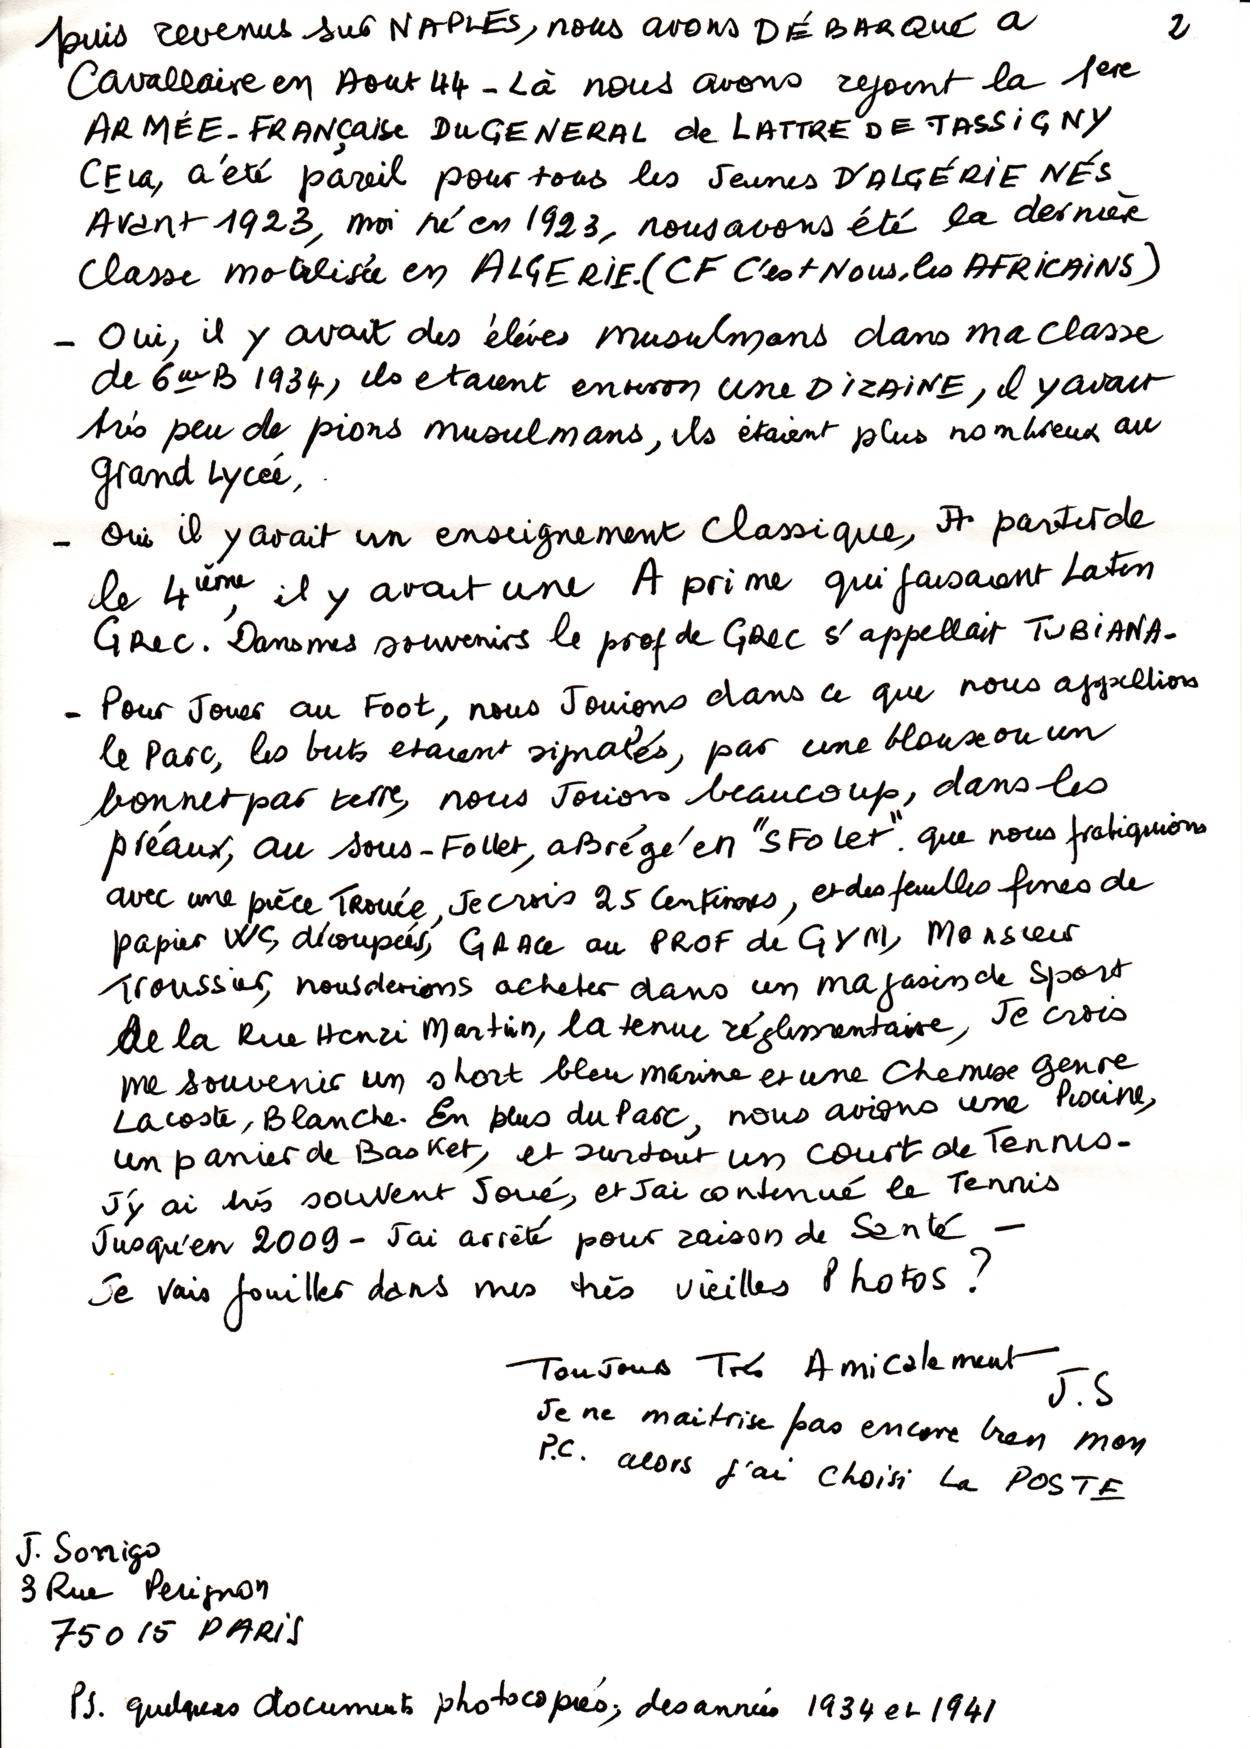 puis revenus sur NAPLES, nous avons DÉBARQUÉ a 2
Cavallaire en Aout 44 - Là nous avons rejoint la 1ere
ARMÉE - FRANÇaise DU GENERAL de LATTRE DE TASSIGNY
CELA, a été pareil pour tous les Jeunes D'ALGÉRIE NÉS
Avant 1923, moi né en 1923, nous avons été la dernière
Classe mobilisée en ALGERIE. (CF C'est Nous, les AFRICAINS)
- Oui, il y avait des élèves musulmans dans ma classe
de 6me B 1934, ils etaient environ une DIZAINE, il y avait
très peu de pions musulmans, ils étaient plus nombreux au
grand Lycée,
- Oui il y avait un enseignement Classique, A partir de
le 4ième, il y avait une A prime qui faisaient Latin
GREC. Dans mes souvenirs le prof de GREC s'appellait TUBIANA -
- Pour Jouer au FOOT, nous Jouions dans ce que nous appellions
le Parc, les buts etaient signalés, par une blouse ou un
bonnet par terre, nous Jouions beaucoup, dans les
préaux, au sous-Follet, aBrégé en "SFOLET". que nous pratiquions
avec une pièce TROUÉE, Je crois 25 Centimes, et des feuilles fines de
papier WC, découpées, GRACE au PROF de GYM, Monsieur
Troussier, nous devions acheter dans un magasin de Sport
de la Rue Henri Martin, la tenue réglementaire, Je crois
me souvenir un short bleu marine et une Chemise genre
Lacoste, Blanche. En plus du Parc, nous avions une Piscine,
un panier de Basket, et surtout un court de Tennis -
J'y ai très souvent Joué, et J'ai continué le Tennis
Jusqu'en 2009 - J'ai arrêté pour raison de Santé —
Je vais fouiller dans mes très vieilles Photos ?
Toujours Très Amicalement
J.S
Je ne maitrise pas encore bien mon
P.C. alors j'ai choisi La POSTE
J. Sorrigo
3 Rue Perignon
75015 PARIS
PS. quelques documents photocopiés, des années 1934 et 1941